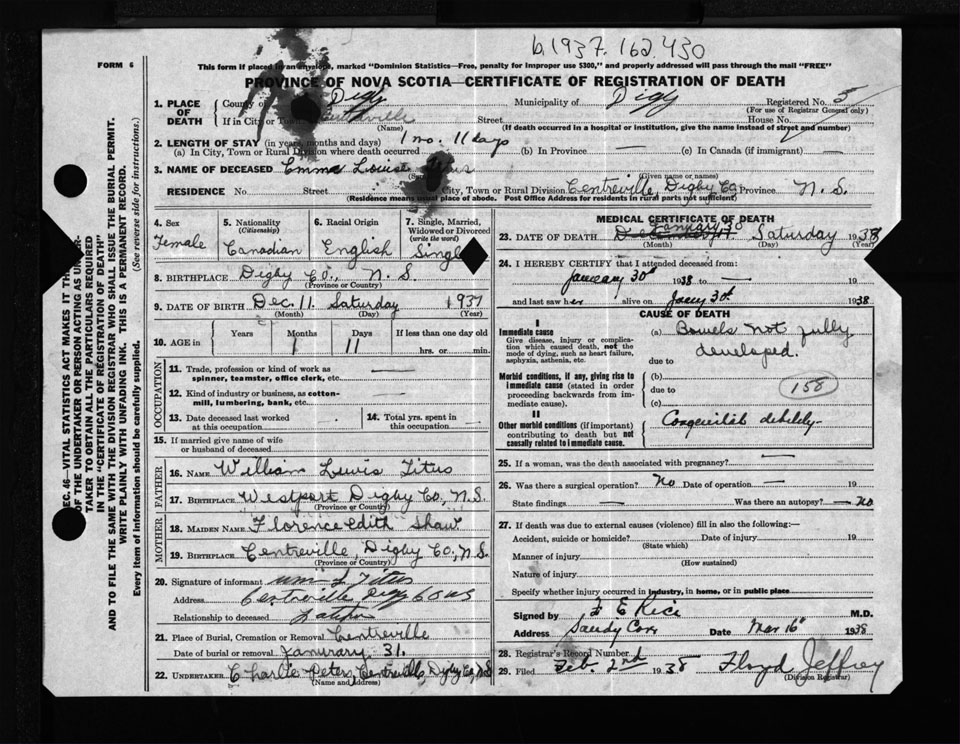 b.1937.162.430
FORM 6
This form if placed in an envelope, marked "Dominion Statistics—Free, penalty for improper use $300," and properly addressed will pass through the mail "FREE"
PROVINCE OF NOVA SCOTIA—CERTIFICATE OF REGISTRATION OF DEATH
1. PLACE OF DEATH
County of Digby Municipality of Digby Registered No. 5
(For use of Registrar General only)
If in City or Town Centreville Street House No.
(Name) (If death occurred in a hospital or institution, give the name instead of street and number)
2. LENGTH OF STAY (in years, months and days)
(a) In City, Town or Rural Division where death occurred 1 mo. 11 days (b) In Province — (c) In Canada (if immigrant) —
3. NAME OF DECEASED Emma Louise
(Given name or names)
RESIDENCE No. Street City, Town or Rural Division Centreville, Digby Co. Province N. S.
(Residence means usual place of abode. Post Office Address for residents in rural parts not sufficient)
SEC. 46—VITAL STATISTICS ACT MAKES IT THE
OF THE UNDERTAKER OR PERSON ACTING AS UNDER-
TAKER TO OBTAIN ALL THE PARTICULARS REQUIRED
IN THE "CERTIFICATE OF REGISTRATION OF DEATH"
AND TO FILE THE SAME WITH THE DIVISION REGISTRAR WHO SHALL ISSUE THE BURIAL PERMIT.
WRITE PLAINLY WITH UNFADING INK. THIS IS A PERMANENT RECORD.
Every item of information should be carefully supplied. (See reverse side for instructions.)
4. Sex
Female
5. Nationality
(Citizenship)
Canadian
6. Racial Origin
English
7. Single, Married,
Widowed or Divorced
(write the word)
Single
8. BIRTHPLACE Digby Co., N. S
(Province or Country)
9. DATE OF BIRTH Dec. 11 Saturday 1937
(Month) (Day) (Year)
10. AGE in
Years Months Days If less than one day old
1 11 hrs. or min.
OCCUPATION
11. Trade, profession or kind of work as
spinner, teamster, office clerk, etc. —
12. Kind of industry or business, as cotton-
mill, lumbering, bank, etc. —
13. Date deceased last worked
at this occupation —
14. Total yrs. spent in
this occupation —
15. If married give name of wife
or husband of deceased
FATHER
16. NAME William Lewis Titus
17. BIRTHPLACE Westport Digby Co, N. S.
(Province or Country)
MOTHER
18. MAIDEN NAME Florence edith Shaw
19. BIRTHPLACE Centreville, Digby Co, N. S
(Province or Country)
20. Signature of informant Wm L Titus
Address Centreville Digby Co N S
Relationship to deceased
21. Place of Burial, Cremation or Removal Centreville
Date of burial or removal Janurary 31.
22. UNDERTAKER Charlie Peters, Centreville Digby Co, N.S
(Name and Address)
MEDICAL CERTIFICATE OF DEATH
January 30
23. DATE OF DEATH Saturday 1938
(Month) (Day) (Year)
24. I HEREBY CERTIFY that I attended deceased from:
January 30th 1938 to —
and last saw her alive on Jany 30th 1938
CAUSE OF DEATH
I
Immediate cause
Give disease, injury or complica-
tion which caused death, not the
mode of dying, such as heart failure,
asphyxia, asthenia, etc.
(a) Bowels not fully
developed.
due to
Morbid conditions, if any, giving rise to
immediate cause (stated in order
proceeding backwards from im-
mediate cause).
(b)
due to
(c)
158
II
Other morbid conditions (if important)
contributing to death but not
causally related to immediate cause.
Congenital debility
25. If a woman, was the death associated with pregnancy? —
26. Was there a surgical operation? No Date of operation — 19
State findings — Was there an autopsy? — No
27. If death was due to external causes (violence) fill in also the following:—
Accident, suicide or homicide? Date of injury 19
(State which)
Manner of injury
(How sustained)
Nature of injury
Specify whether injury occurred in industry, in home, or in public place
Signed by F E Rice M.D.
Address Sandy Cove Date Mar 16th 1938
28. Registrar's Record Number
29. Filed Feb. 2nd 1938 Floyd Jeffrey
(Division Registrar)